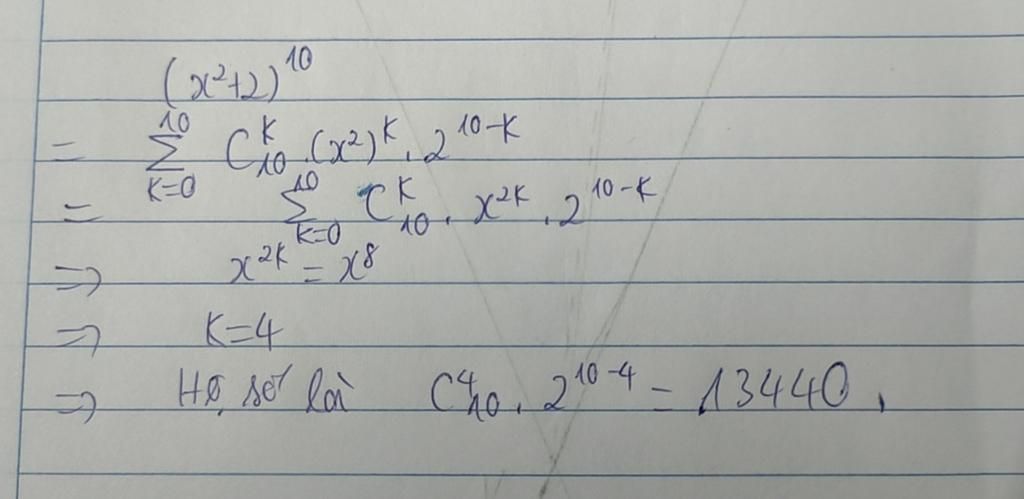 (x²+2)¹⁰
= ∑_{K=0}^{10} C_{10}^{K} . (x²)^K . 2^{10-K}
= ∑_{K=0}^{10} C_{10}^{K} . x^{2K} . 2^{10-K}
=> x^{2K} = x⁸
=> K=4
=> Hệ số là C_{10}^{4} . 2^{10-4} = 13440 .